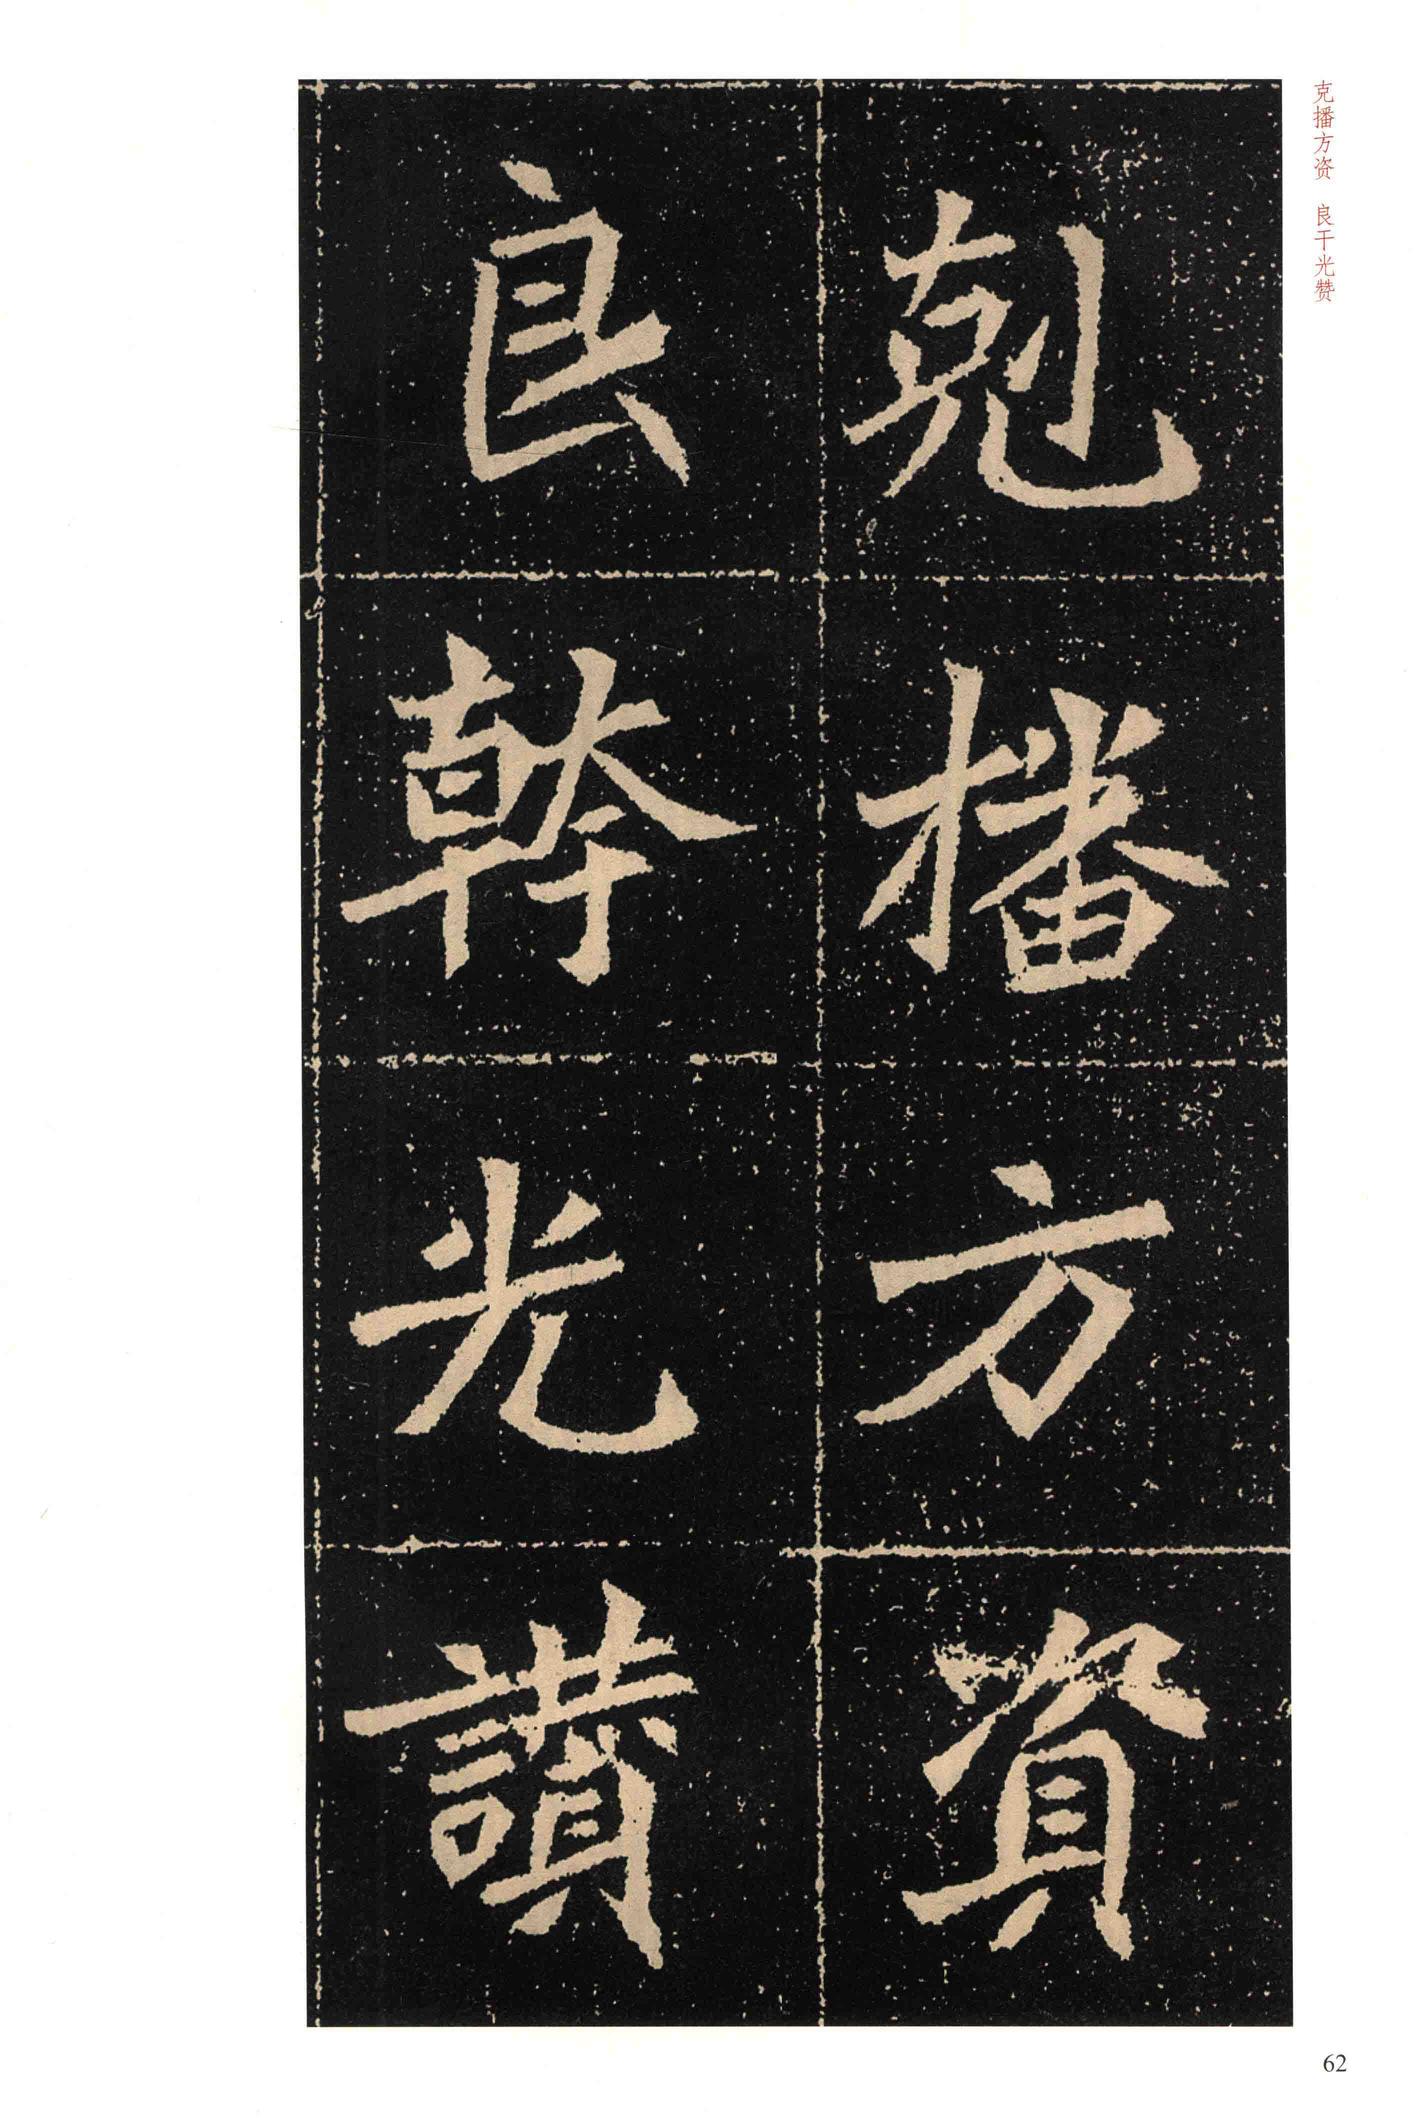 克播方资　良干光赞
剋播方資
良幹光讃
62